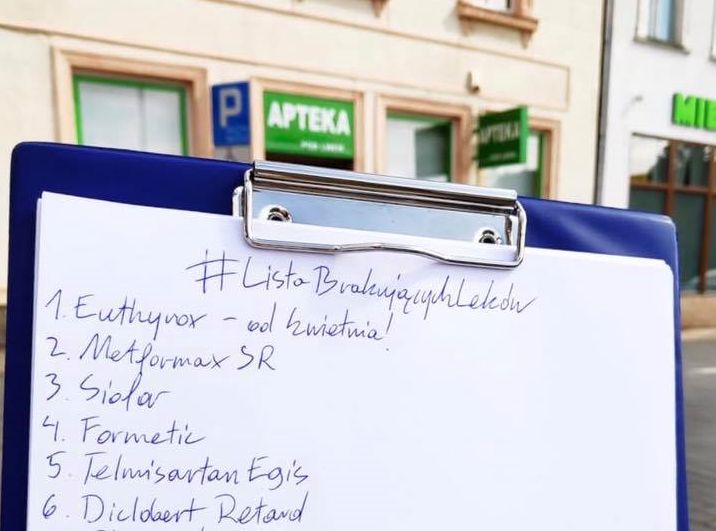 P
APTEKA
APTEKA
MIE
#ListaBrakującychLeków
1. Euthyrox - od kwietnia!
2. Metformax SR
3. Siofor
4. Formetic
5. Telmisartan Egis
6. Diclobert Retard